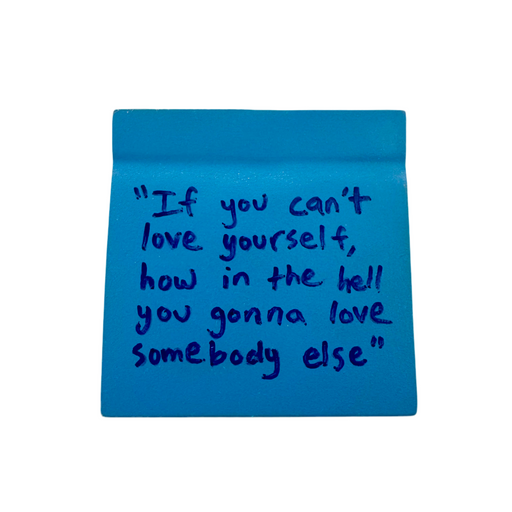 "If you can't
love yourself,
how in the hell
you gonna love
somebody else"